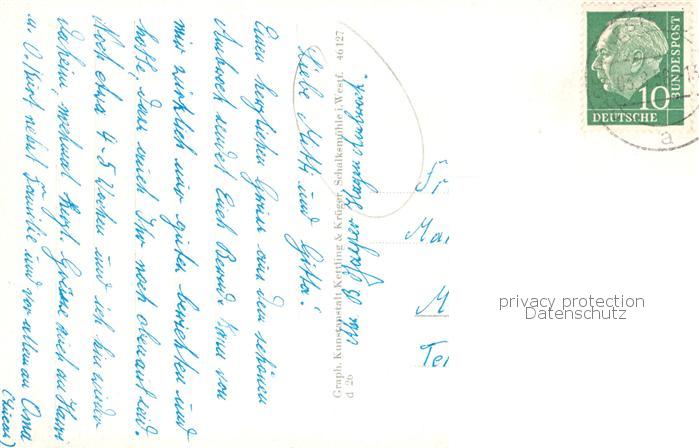 Liebe Mutti und Gitta!
Einen herzlichen Gruss aus dem schönen
Ambrock sendet Euch Bernd. Kann von
mir wirklich nur gutes berichten und
hoffe, dass auch Ihr noch obenauf seid.
Noch etwa 4-5 Wochen und ich bin wieder
daheim, nochmal herzl. Grüsse auch an Hans
u. O. Kurt nebst Familie und vor allem an Oma
(Lucas)
Graph. Kunstanstalt Kettling & Krüger, Schalksmühle i. Westf. 46127
d 26
Hagen Ambrock.
Fr
Mar
M
Ter
10
DEUTSCHE
BUNDESPOST
a
privacy protection
Datenschutz